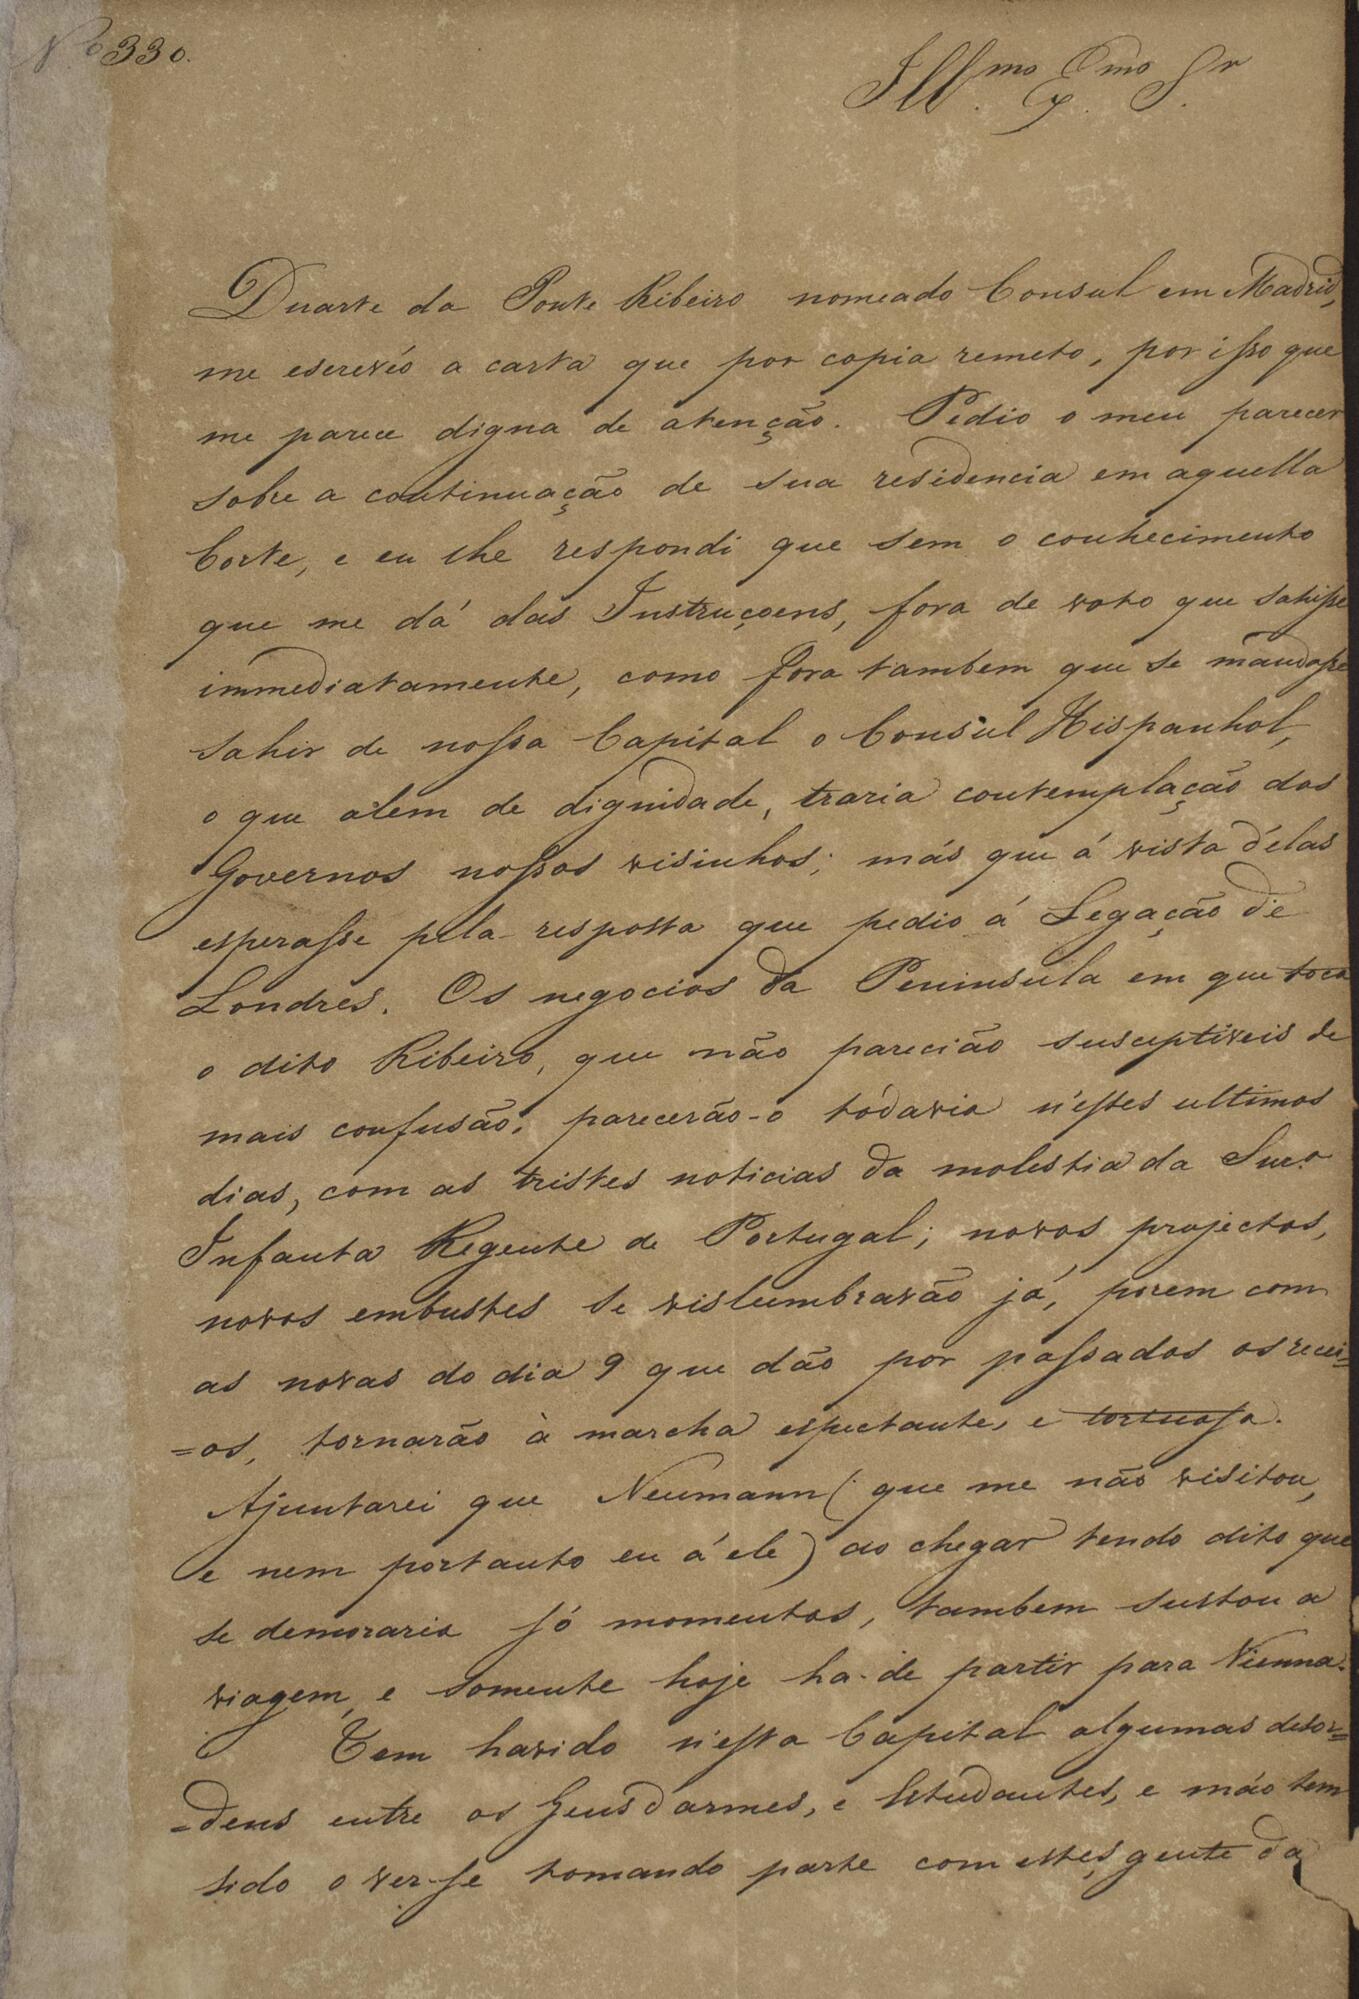 Nº 330.
Ill.mo Ex.mo Sr.
Duarte da Ponte Ribeiro nomeado Consul em Madrid,
me escrevéo a carta que por copia remeto, por isso que
me parece digna de atenção. Pedio o meu parecer
sobre a continuação de sua residencia em aquella
Corte, e eu lhe respondi que sem o conhecimento
que me dá das Instruçoens, fora de voto que sahisse
immediatamente, como fora tambem que se mandasse
sahir de nossa Capital o Consul Hispanhol,
o que alem de dignidade, traria contemplação dos
Governos nossos visinhos; más que á vista d'elas
esperasse pela resposta que pedio á Legação de
Londres. Os negocios da Peninsula em que toca
o dito Ribeiro, que não parecião susceptiveis de
mais confusão, parecerão-o tódavia n'estes ultimos
dias, com as tristes noticias da molestia da Snr.a
Infanta Regente de Portugal; novos projectos,
novos embustes se vislumbravão já, porem com
as novas do dia 9 que dão por passados os recei=
=os, tornarão à marcha espectante, e tortuosa.
Ajuntarei que Neumann (que me não visitou,
e nem portanto eu á ele) ao chegar tendo dito que
se demoraria só momentos, tambem sustou a
viagem, e somente hoje ha-de partir para Vienna.
Tem havido n'esta Capital algumas desor=
=dens entre os Gens d'armes, e Estudantes, e máo tem
sido o ver-se tomando parte com estes, gente da